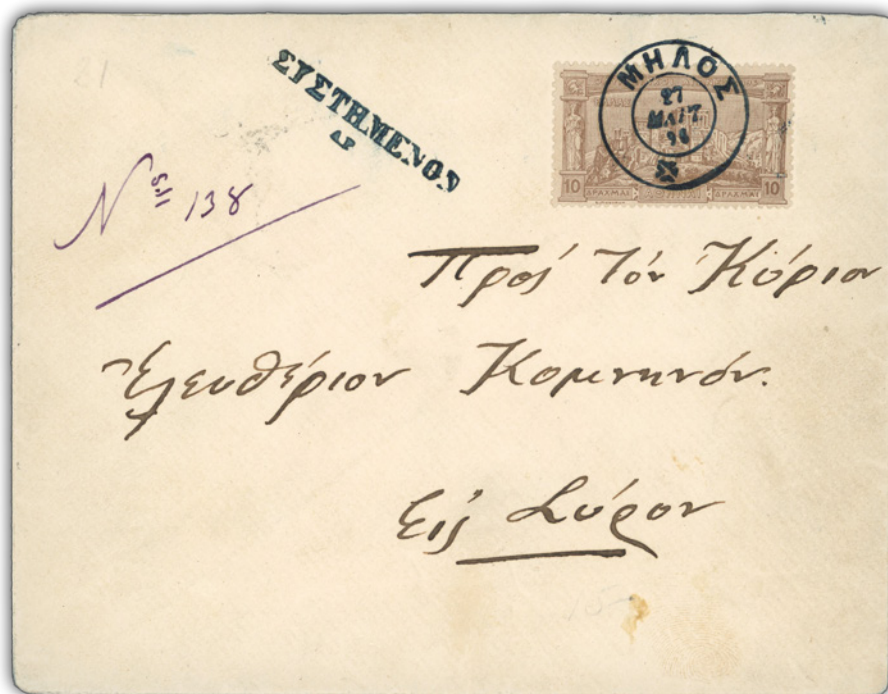 ΣΥΣΤΗΜΕΝΟΝ
ΜΗΛΟΣ
27
96
10 ΔΡΑΧΜΑΙ ΔΡΑΧΜΑΙ 10
Nος 138
Πρός τόν Κύριον
Ἐλευθέριον Κομνηνόν.
Εἰς Σύρον